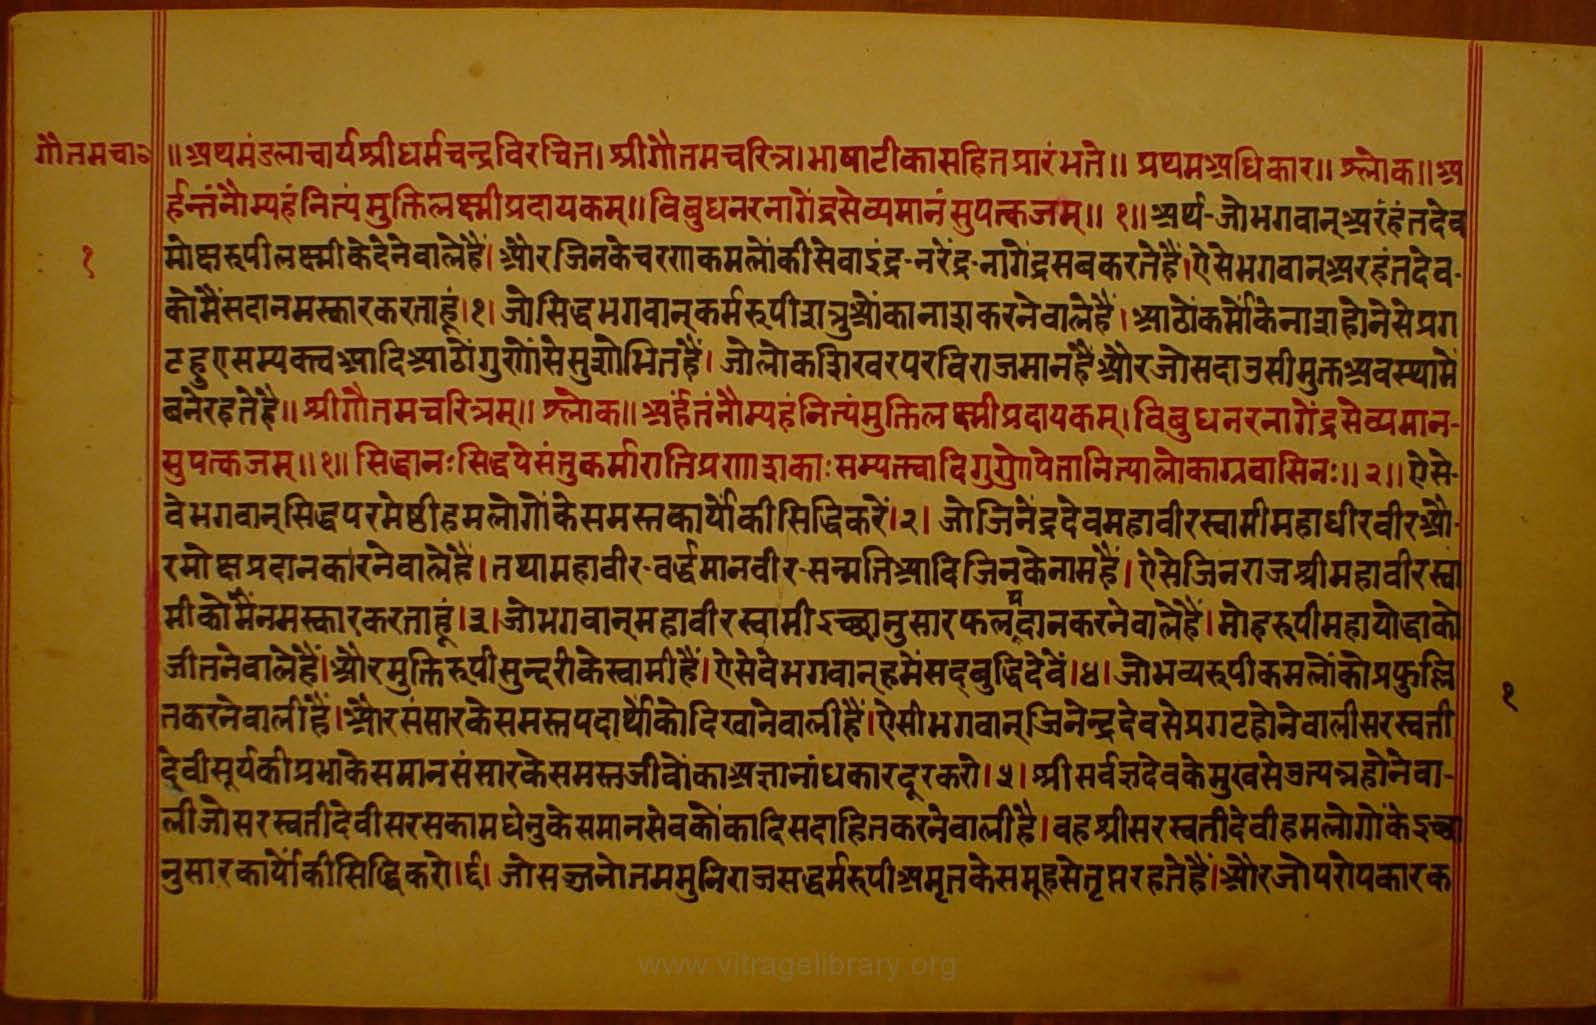 गौतमचा०
॥अथमंडलाचार्यश्रीधर्मचन्द्रविरचित। श्रीगौतमचरित्र।भाषाटीकासहितप्रारंभते॥ प्रथमअधिकार॥ श्लोक॥अ
र्हन्तंनौम्यहंनित्यं मुक्तिलक्ष्मीप्रदायकम्॥विबुधनरनागेंद्रसेव्यमानंसुपत्कजम्॥ १॥ अर्थ-जोभगवान्अरंहंतदेव
१
मोक्षरुपीलक्ष्मीकेदेनेवालेहैं। औरजिनकेचरणकमलोंकीसेवाइंद्र-नरेंद्र-नागेंद्रसबकरतेहैं।ऐसेभगवान्अरहंतदेव-
कोमैंसदानमस्कारकरताहूं।१। जोसिद्धभगवान्कर्मरुपीशत्रुओंकानाशकरनेवालेहैं। आठोंकर्मोंकेनाशहोनेसेप्रग
टहुएसम्यक्त्वआदिआठोंगुणोंसेसुशोभितहैं। जोलोकशिखरपरविराजमानहैंऔरजोसदाउसीमुक्तअवस्थामें
बनेरहतेहै॥ श्रीगौतमचरित्रम्॥ श्लोक॥ अंर्हतंनौम्यहंनित्यंमुक्तिलक्ष्मीप्रदायकम्।विबुधनरनागेंद्रसेव्यमान-
सुपत्कजम्॥१॥ सिद्धानःसिद्धयेसंतुकर्मारातिप्रणाशकाःसम्यत्त्वादिगुणेोपेतानित्यालोकाग्रवासिनः॥२॥ ऐसे-
वेभगवान्सिद्धपरमेष्ठीहमलोगोंकेसमस्तकार्योंकीसिद्धिकरें।२। जोजिनेंद्रदेवमहावीरस्वामीमहाधीरवीरऔ-
रमोक्षप्रदानकारनेवालेहैं।तथामहावीर-वर्द्धमानवीर-सन्मतिआदिजिनकेनामहैं। ऐसेजिनराजश्रीमहावीरस्वा
मीकोमैंनमस्कारकरताहूं।३।जोभगवान्महावीरस्वामीइच्छानुसारफलप्रदानकरनेवालेहैं।मोहरुपीमहायोद्धाको
जीतनेवालेहैं।औरमुक्तिरुपीसुन्दरीकेस्वामीहैं।ऐसेवेभगवान्हमेंसद्बुद्धिदेवें।४। जोभव्यरुपीकमलोंकोप्रफुल्लि
तकरनेवालीहैं।औरसंसारकेसमस्तपदार्थोंकोदिखानेवालीहैं।ऐसीभगवान्जिनेन्द्रदेवसेप्रगटहोनेवालीसरस्वती
१
देवीसूर्यकीप्रभाकेसमानसंसारकेसमस्तजीवोंकाअज्ञानांधकारदूरकरो।५। श्रीसर्वज्ञदेवकेमुखसेउत्पन्नहोनेवा-
लीजोसरस्वतीदेवीसरसकामधेनुकेसमानसेवकोंकादिसदाहितकरनेवालीहै।वहश्रीसरस्वतीदेवीहमलोगोंकेइच्छा
नुसारकार्योंकीसिद्धिकरो।६। जोसज्जनोतममुनिराजसद्धर्मरुपीअमृतकेसमूहसेतृप्तरहतेहैं।औरजोपरोपकारक
www.vitragelibrary.org